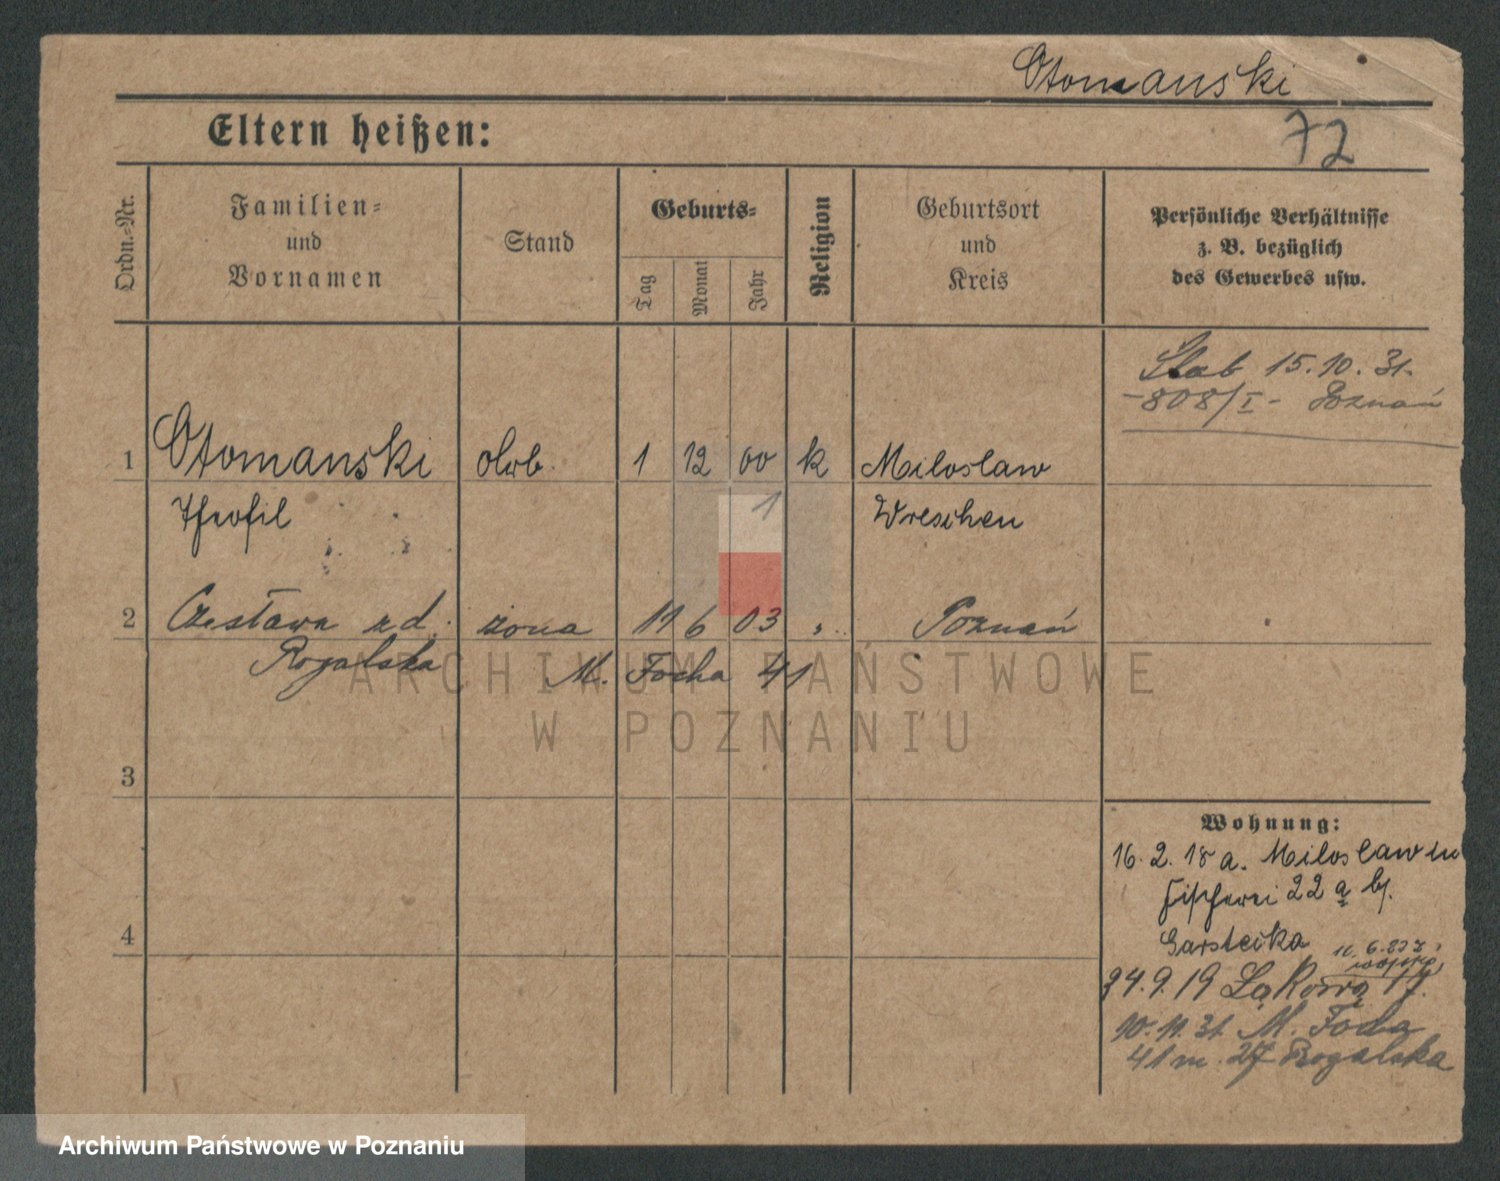 Otomanski
72
Eltern heißen:
Ordn.-Nr.
Familien-
und
Vornamen
Stand
Geburts-
Tag
Monat
Jahr
Religion
Geburtsort
und
Kreis
Persönliche Verhältnisse
z. B. bezüglich
des Gewerbes usw.
15.10.31.
-808/I- Poznań
1 Otomanski 1 12 00 k Miloslaw
Theofil 1 Wreschen
2 Czesława zd. żona 11 6 03 Poznań
Rogalska M. Focha 41
3
4
Wohnung:
16.2.18 a. Miloslaw in
Fischerei 22 a bj.
Garsteika
24.9.19 Łąkowa 17.
10.11.31 M. Focha
41 m. 27 Rogalska
ARCHIWUM PAŃSTWOWE
W POZNANIU
Archiwum Państwowe w Poznaniu